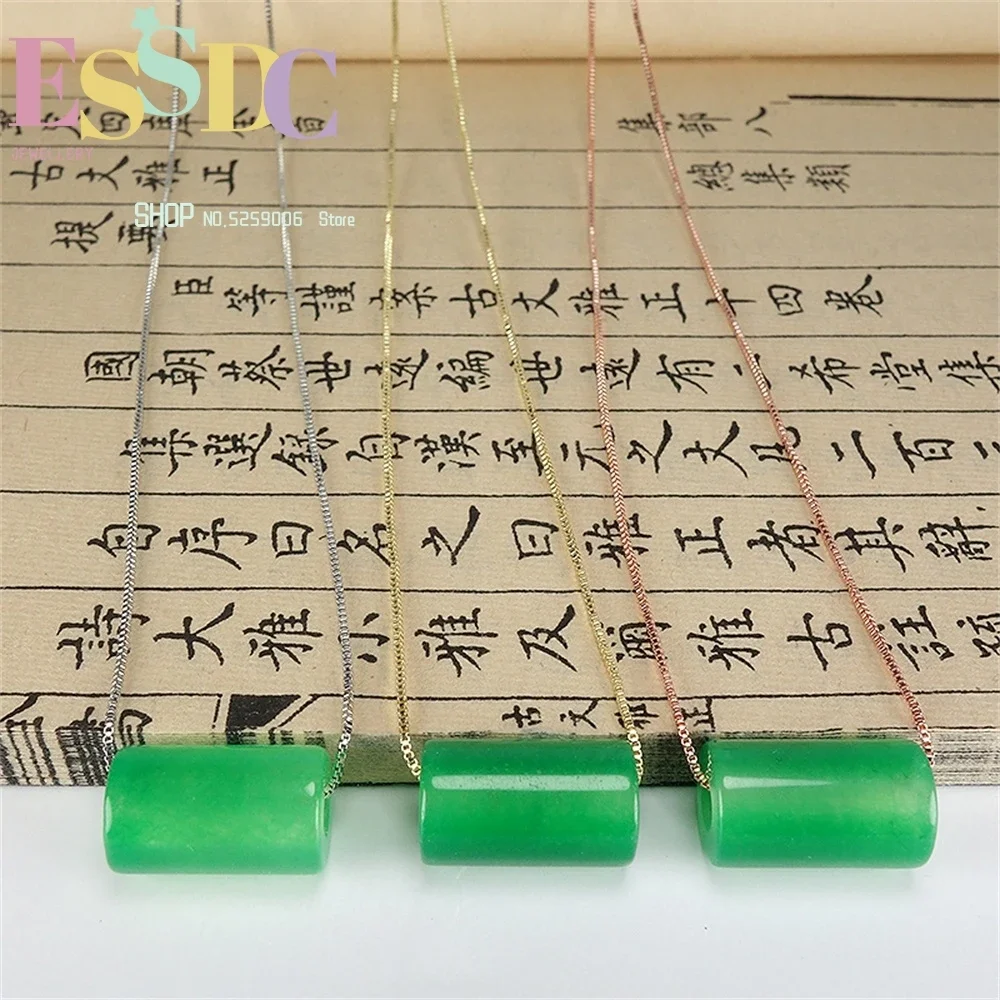 ESSDC
JEWELLERY
SHOP NO.5259006 Store
集部八
古文雅正
總集類
提要
臣等謹案古文雅正十四卷
國朝蔡世遠編世遠有二希堂集
集選錄自漢至元之文凡二百三
自序曰名之曰雅正者其辭
詩大雅小雅及爾雅古註疏
古文雅正